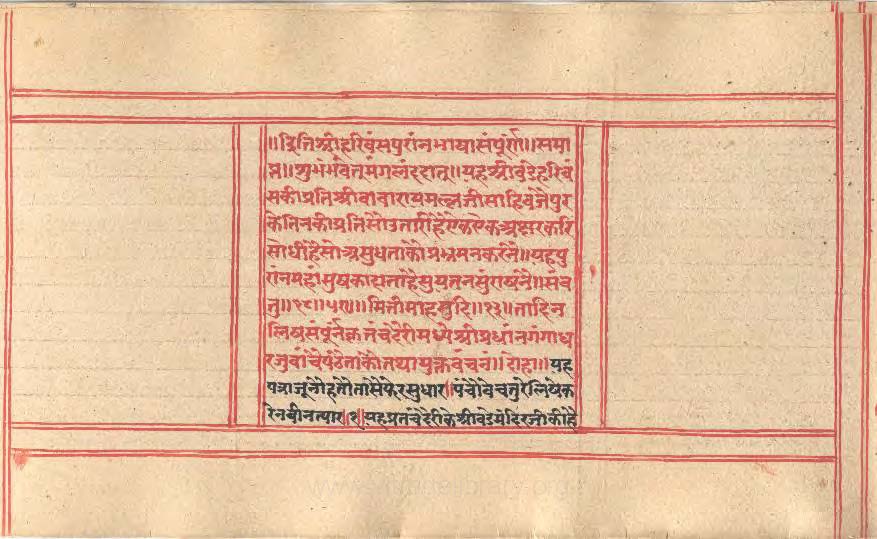 ॥इतिश्रीहरिवंसपुरांनभाषासंपूर्ण॥समा
प्त॥शुभंभवतमंगलंददात्॥यहश्रीवडेहरिवं
सकीप्रतिश्रीबाबारायमल्लजीसाहिवजैपुर
केतिनकीप्रतिसौउतारीहैऐकऐकअक्षरकरि
सोधीहैसोअसुधताकौप्रभ्रमनकरिनै॥यहपु
रांनमहांसुषकादाताहैसुयतनसुंराषंनै॥संव
तु॥१८॥५९॥मितीमाहसुदि॥१३॥तादिन
लिषसंपूर्नकृतंचदेरीमध्येश्रीप्रधांनगंगाध
रजुवांचैपढैताकौतथायुक्तवंचनं॥दोहा॥यह
पत्राजूनौहतौतासेफेरसुधार॥पंचोवेचतुरेलिषेक
रेनवीनत्यार॥१॥यहप्रतचंदेरीकेश्रीवडेमंदिरजीकीहै
www.library.org